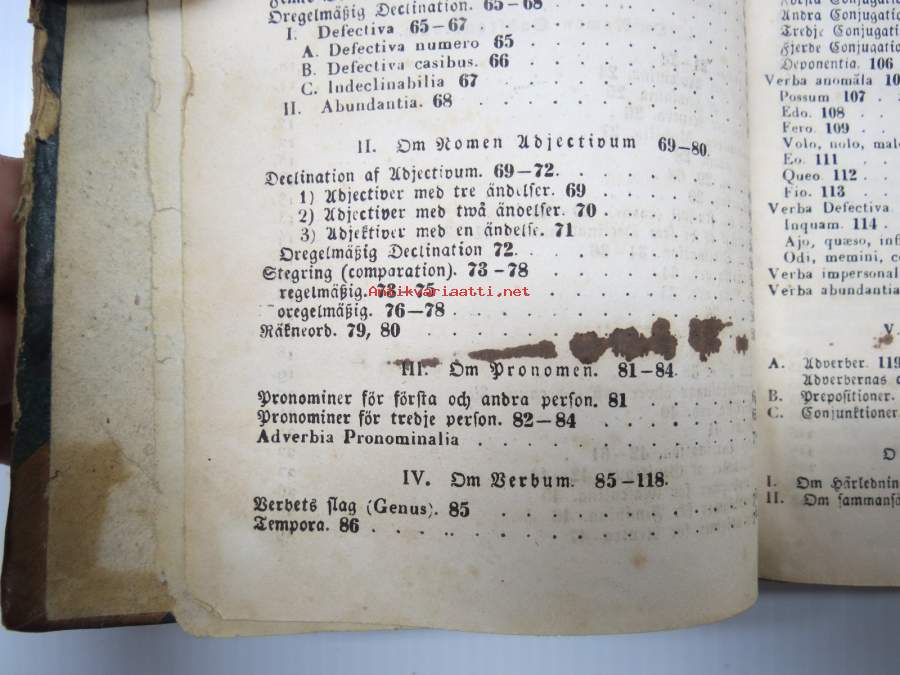 Oregelmäßig Declination. 65–68
I. Defectiva 65–67
A. Defectiva numero 65
B. Defectiva casibus. 66
C. Indeclinabilia 67
II. Abundantia. 68
II. Om Nomen Adjectivum 69–80.
Declination af Adjectivum. 69–72.
1) Adjectiver med tre ändelser. 69
2) Adjectiver med twå ändelser. 70
3) Adjektiver med en ändelse. 71
Oregelmäßig Declination 72.
Stegring (comparation). 73–78
regelmäßig. 73–75
oregelmäßig. 76–78
Räkneord. 79, 80
III. Om Pronomen. 81–84.
Pronominer för första och andra person. 81
Pronominer för tredje person. 82–84
Adverbia Pronominalia
IV. Om Verbum. 85–118.
Verbets slag (Genus). 85
Tempora. 86
Antikvariaatti.net
Andra
Tredje
Fjerde
Deponentia. 106
Verba anomăla
Possum 107
Edo. 108
Fero. 109
Volo, nolo,
Eo. 111
Queo. 112
Fio. 113
Verba Defectiva.
Inquam. 114
Ajo, quæso,
Odi, memini,
Verba
Verba abundantia
V.
A. Adverber. 119
Adverbernas
B. Prepositioner.
C. Conjunktioner
I. Om
II. Om